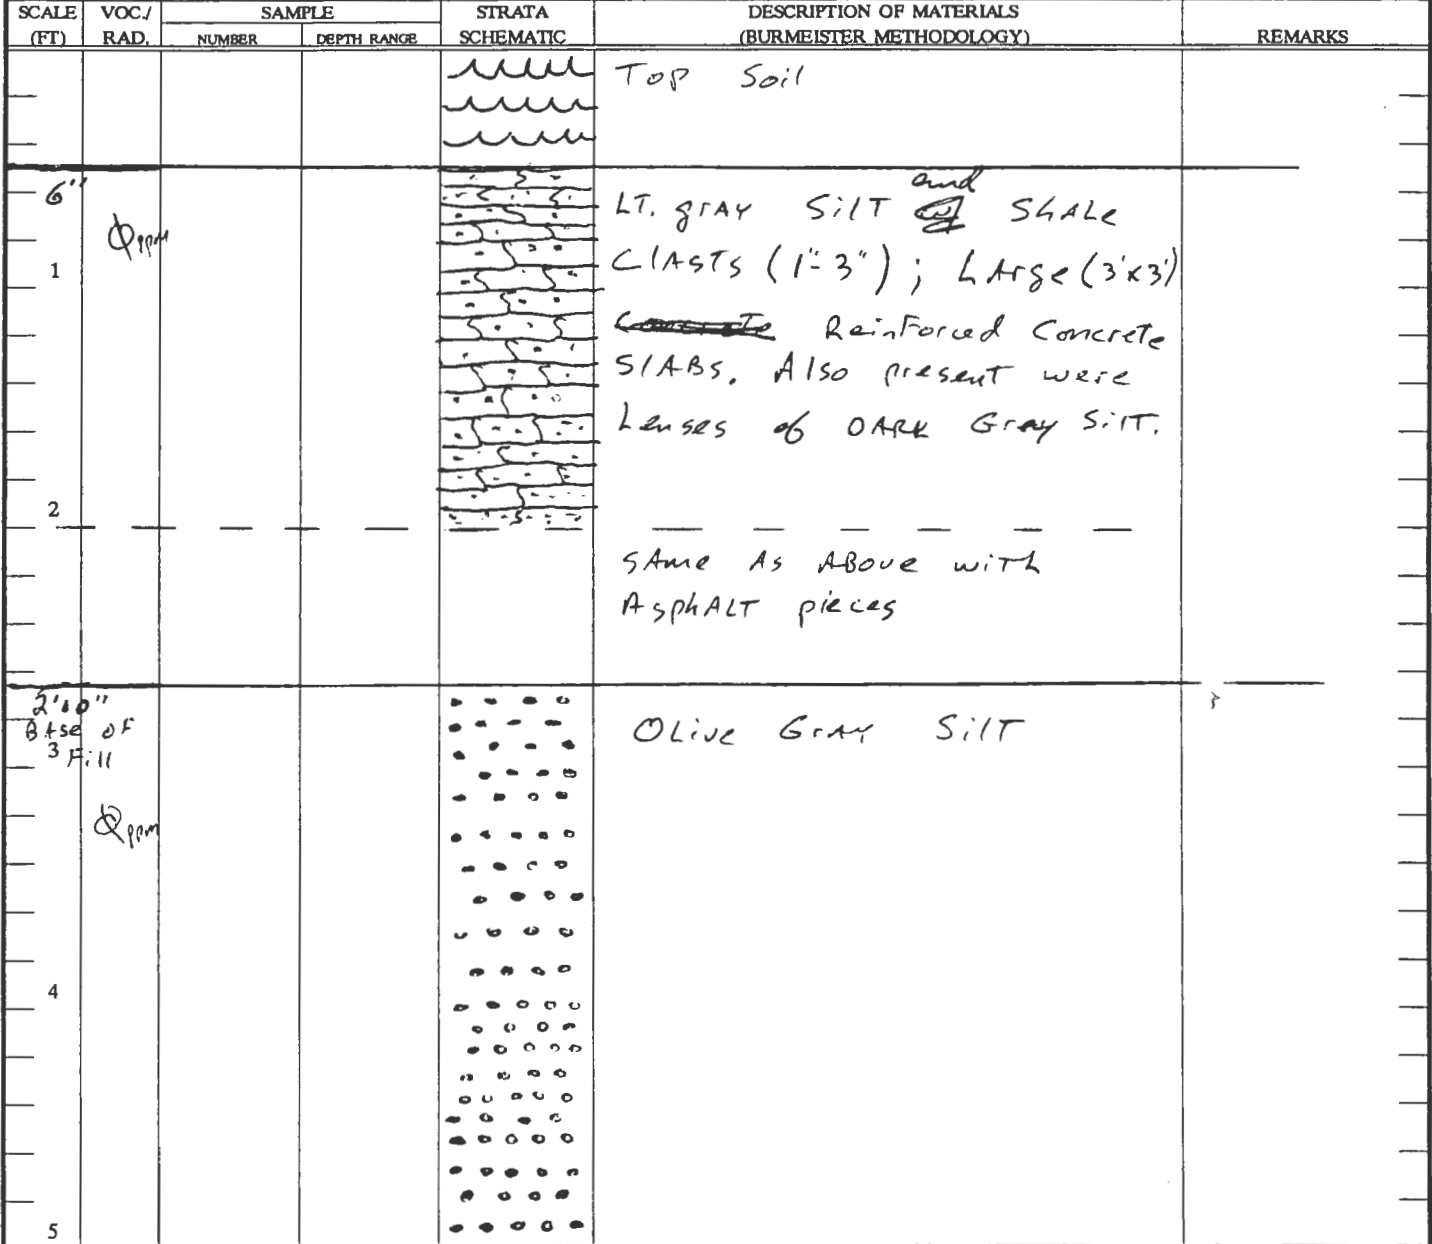 SCALE (FT) VOC./ RAD. SAMPLE NUMBER DEPTH RANGE STRATA SCHEMATIC DESCRIPTION OF MATERIALS (BURMEISTER METHODOLOGY) REMARKS
Top Soil
6"
LT. grAY SilT and ShALe
Φ ppm
1
ClASTs (1"-3") ; LArge (3'x3')
ReinForced Concrete
SlABs. Also present were
Lenses of DARK Gray SilT.
2
SAme As ABove wiTh
AsphALT pieces
2'10"
BAse oF
Fill
OLive GrAY SilT
3
Φ ppm
4
5